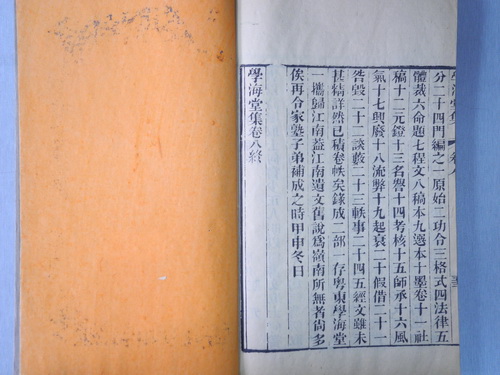 學海堂集 卷八
分二十四門編之一原始二功令三格式四法律五
體裁六命題七程文八稿本九選本十墨卷十一社
稿十二元鐙十三名譽十四考核十五師承十六風
氣十七興廢十八流弊十九起衰二十假借二十一
告毀二十二談藪二十三軼事二十四五經文雖未
甚縝詳然已積卷帙矣錄成二部一存粵東學海堂
一攜歸江南葢江南遺文舊說爲嶺南所無者尙多
俟再令家塾子弟補成之時甲申冬日
學海堂集卷八終